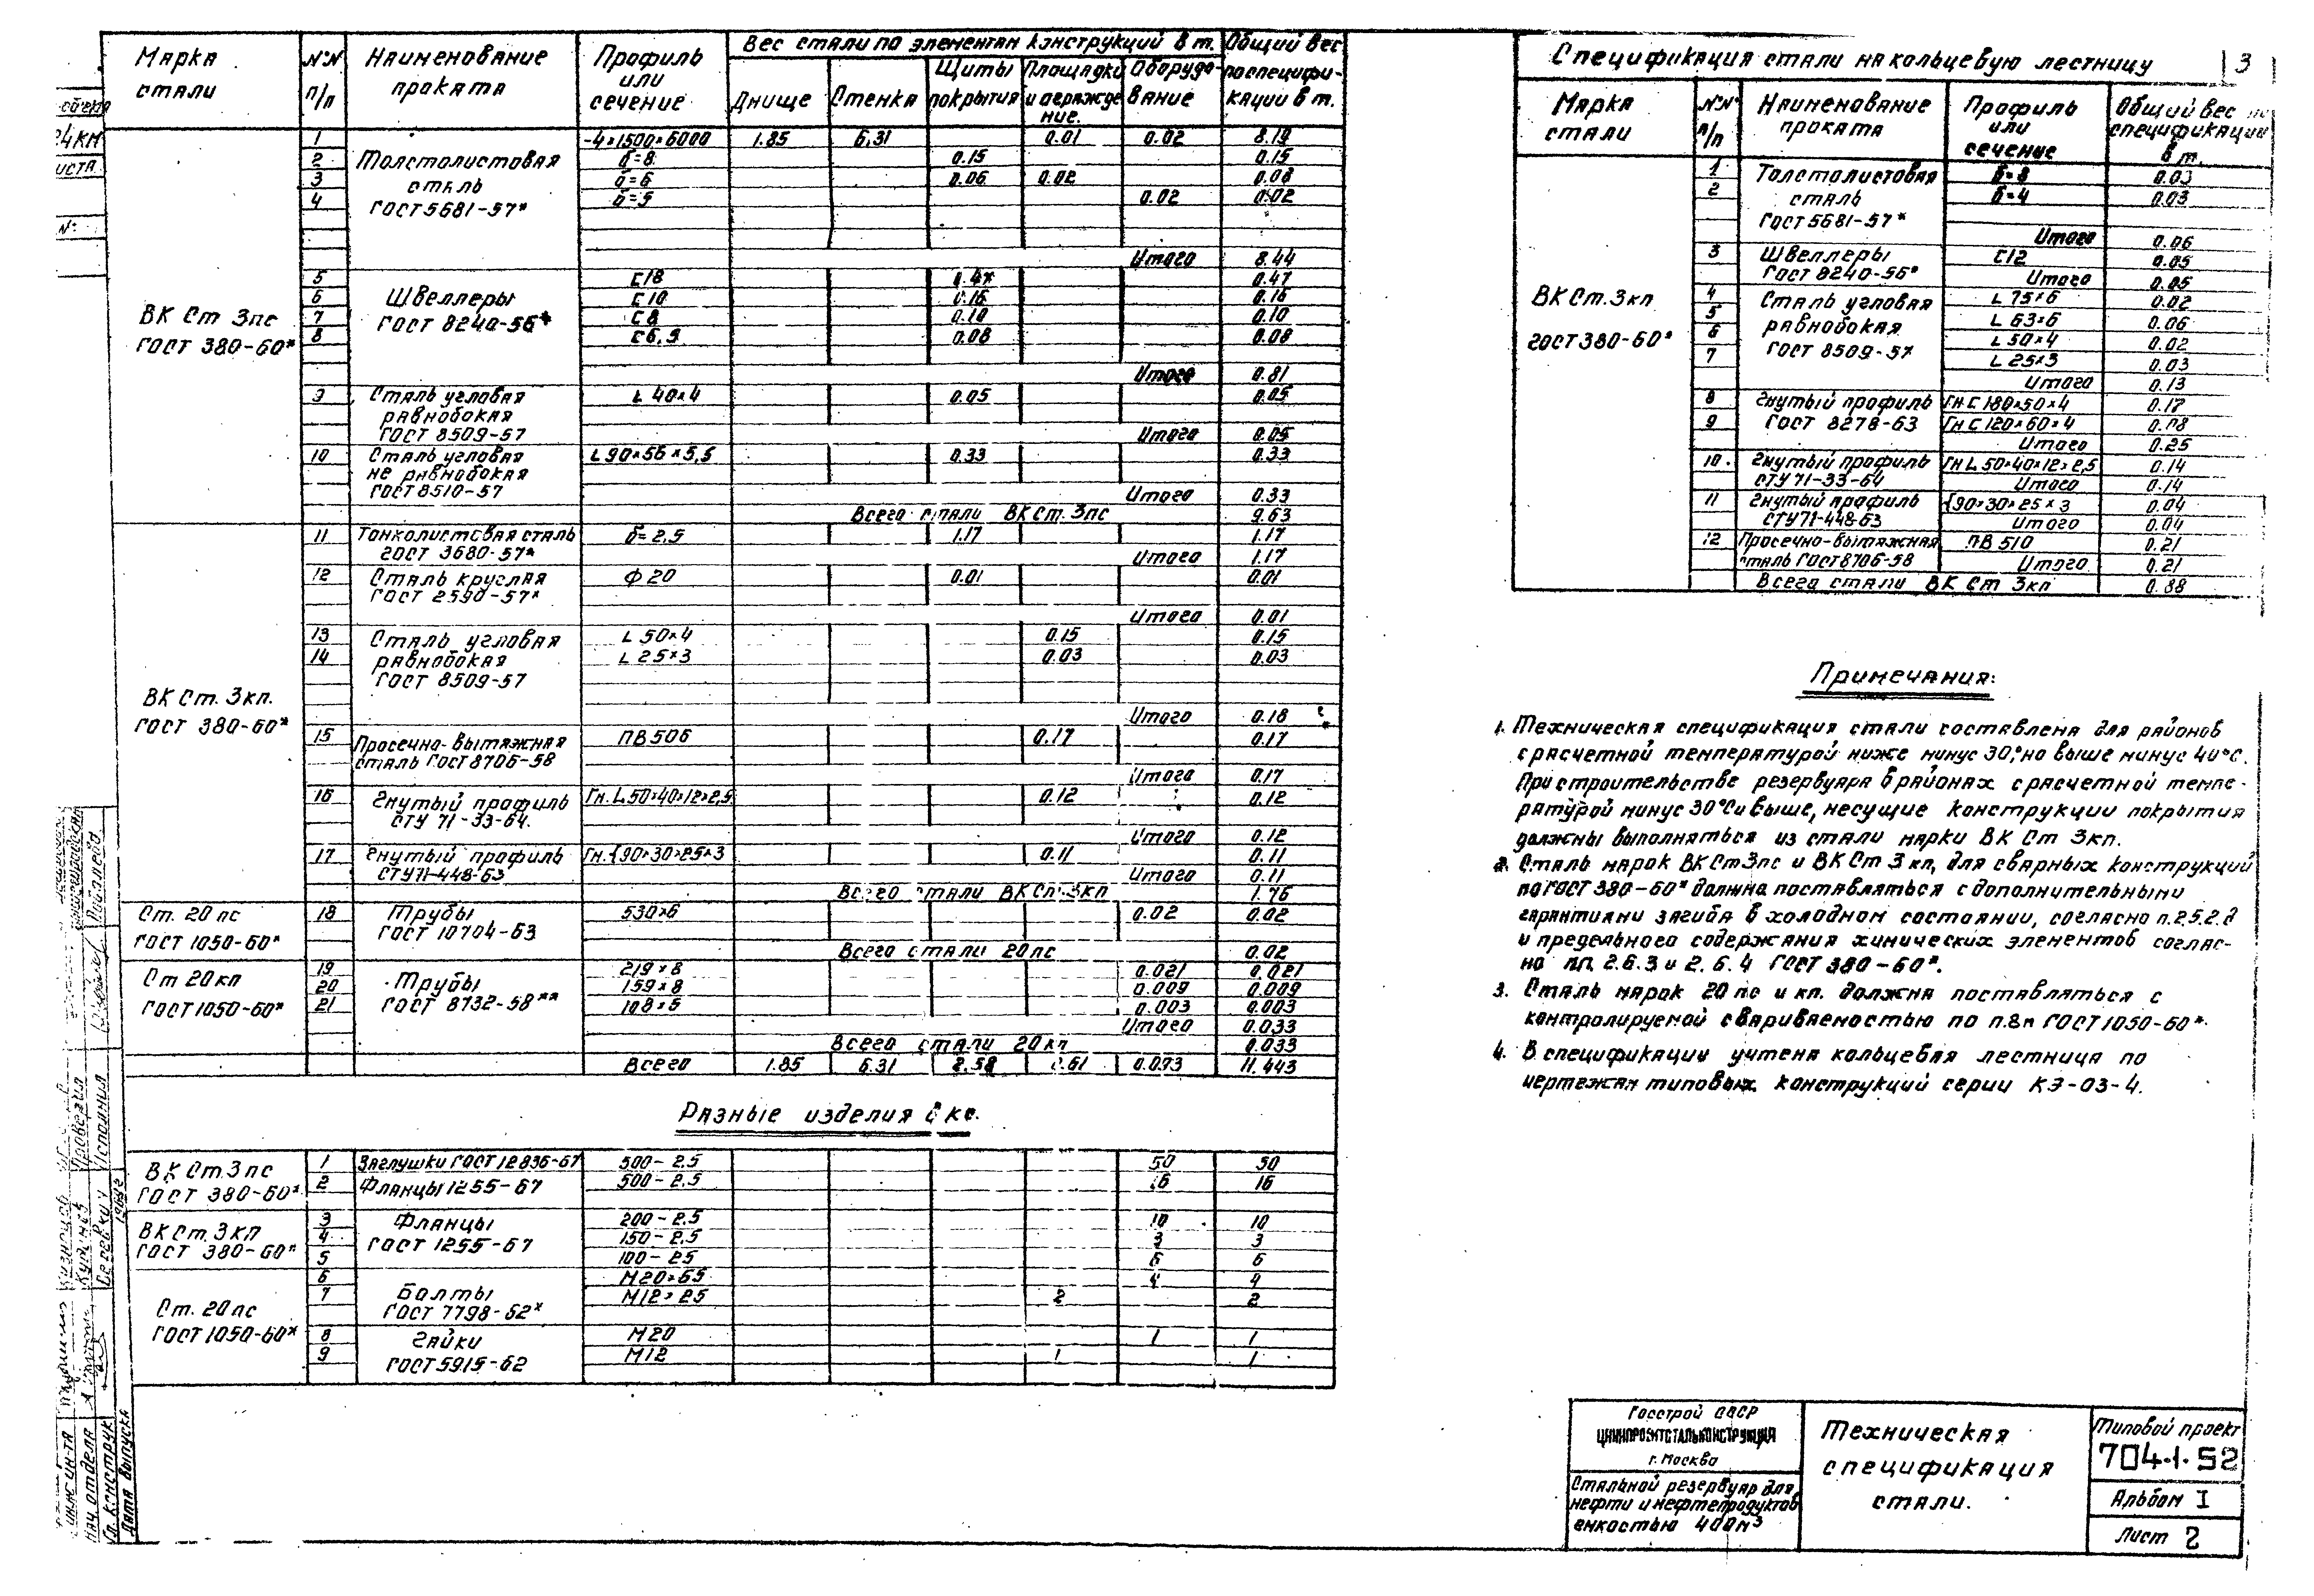 Марка стали | №№ п/п | Наименование проката | Профиль или сечение | Вес стали по элементам конструкций в т. | Общий вес по специфи-кации в т.
Днище | Стенка | Щиты покрытия | Площадки и огражде ние. | Оборудо-вание
ВК Ст 3пс ГОСТ 380-60*
1 | -4×1500×6000 | 1.85 | 6.31 | 0.01 | 0.02 | 8.19
Толстолистовая сталь ГОСТ 5681-57*
2 | б=8 | 0.15 | 0.15
3 | б=6 | 0.06 | 0.02 | 0.08
4 | б=5 | 0.02 | 0.02
Итого 8.44
Швеллеры ГОСТ 8240-56*
5 | С18 | 0.47 | 0.47
6 | С10 | 0.16 | 0.16
7 | С8 | 0.10 | 0.10
8 | С6,5 | 0.08 | 0.08
Итого 0.81
9 | Сталь угловая равнобокая ГОСТ 8509-57 | L 40×4 | 0.05 | 0.05
Итого 0.05
10 | Сталь угловая не равнобокая ГОСТ 8510-57 | L 90×56×5,5 | 0.33 | 0.33
Итого 0.33
Всего стали ВК Ст. 3пс 9.63
ВК Ст. 3кп. ГОСТ 380-60*
11 | Тонколистовая сталь ГОСТ 3680-57* | б=2,5 | 1.17 | 1.17
Итого 1.17
12 | Сталь круглая ГОСТ 2590-57* | Ф20 | 0.01 | 0.01
Итого 0.01
Сталь угловая равнобокая ГОСТ 8509-57
13 | L 50×4 | 0.15 | 0.15
14 | L 25×3 | 0.03 | 0.03
Итого 0.18
15 | Просечно-вытяжная сталь ГОСТ 8706-58 | ПВ506 | 0.17 | 0.17
Итого 0.17
16 | Гнутый профиль СТУ 71-33-64. | Гн. L 50×40×12×2,5 | 0.12 | 0.12
Итого 0.12
17 | Гнутый профиль СТУ 71-448-63 | Гн. {90×30×25×3 | 0.11 | 0.11
Итого 0.11
Всего стали ВК Ст. 3кп 1.76
Ст. 20 пс ГОСТ 1050-60*
18 | Трубы ГОСТ 10704-63 | 530×6 | 0.02 | 0.02
Всего стали 20пс 0.02
Ст 20 кп ГОСТ 1050-60*
Трубы ГОСТ 8732-58**
19 | 219×8 | 0.021 | 0.021
20 | 159×8 | 0.009 | 0.009
21 | 108×6 | 0.003 | 0.003
Итого 0.033
Всего стали 20кп 0.033
Всего | 1.85 | 6.31 | 2.58 | 0.073 | 11.443
Разные изделия в кг.
ВК Ст. 3 пс ГОСТ 380-60*
1 | Заглушки ГОСТ 12836-67 | 500-2.5 | 50 | 50
2 | Фланцы 1255-67 | 500-2.5 | 16 | 16
ВК Ст. 3 кп ГОСТ 380-60*
Фланцы ГОСТ 1255-67
3 | 200-2.5 | 10 | 10
4 | 150-2.5 | 3 | 3
5 | 100-25 | 6 | 6
Ст. 20 пс ГОСТ 1050-60*
Болты ГОСТ 7798-62*
6 | М20×65 | 4 | 4
7 | М12×25 | 2 | 2
Гайки ГОСТ 5915-62
8 | М20 | 1 | 1
9 | М12 | 1 | 1
Спецификация стали на кольцевую лестницу
3
Марка стали | №№ п/п | Наименование проката | Профиль или сечение | Общий вес по спецификации в т.
ВК Ст. 3кп ГОСТ 380-60*
Толстолистовая сталь ГОСТ 5681-57*
1 | б=8 | 0.03
2 | б=4 | 0.03
Итого 0.06
3 | Швеллеры ГОСТ 8240-56* | С12 | 0.05
Итого 0.05
Сталь угловая равнобокая ГОСТ 8509-57
4 | L 75×6 | 0.02
5 | L 63×6 | 0.06
6 | L 50×4 | 0.02
7 | L 25×3 | 0.03
Итого 0.13
Гнутый профиль ГОСТ 8278-63
8 | Гн С 180×50×4 | 0.17
9 | Гн С 120×60×4 | 0.08
Итого 0.25
10. | Гнутый профиль СТУ 71-33-64 | Гн L 50×40×12×2,5 | 0.14
Итого 0.14
11 | Гнутый профиль СТУ 71-448-63 | {90×30×25×3 | 0.04
Итого 0.04
12 | Просечно-вытяжная сталь ГОСТ 8706-58 | ПВ 510 | 0.21
Итого 0.21
Всего стали ВК Ст 3кп 0.88
Примечания:
1. Техническая спецификация стали составлена для районов
с расчетной температурой ниже минус 30°, но выше минус 40°С.
При строительстве резервуара в районах с расчетной темпе-
ратурой минус 30°С и выше, несущие конструкции покрытия
должны выполняться из стали марки ВК Ст 3кп.
2. Сталь марок ВК Ст 3пс и ВК Ст 3 кп, для сварных конструкций
по ГОСТ 380-60* должна поставляться с дополнительными
гарантиями загиба в холодном состоянии, согласно п.2.5.2.д
и предельного содержания химических элементов соглас-
но пп. 2.6.3 и 2.6.4 ГОСТ 380-60*.
3. Сталь марок 20 пс и кп. должна поставляться с
контролируемой свариваемостью по п.8п ГОСТ 1050-60*.
4. В спецификации учтена кольцевая лестница по
чертежам типовых конструкций серии КЭ-03-4.
Госстрой СССР
ЦНИИПРОЕКТСТАЛЬКОНСТРУКЦИЯ
г. Москва
Стальной резервуар для
нефти и нефтепродуктов
емкостью 400м³
Техническая
спецификация
стали.
Типовой проект
704-1-52
Альбом I
Лист 2
нач. отдела
Гл. конструк
Дата выпуска
Кузнецов
Проверил
Исполнил